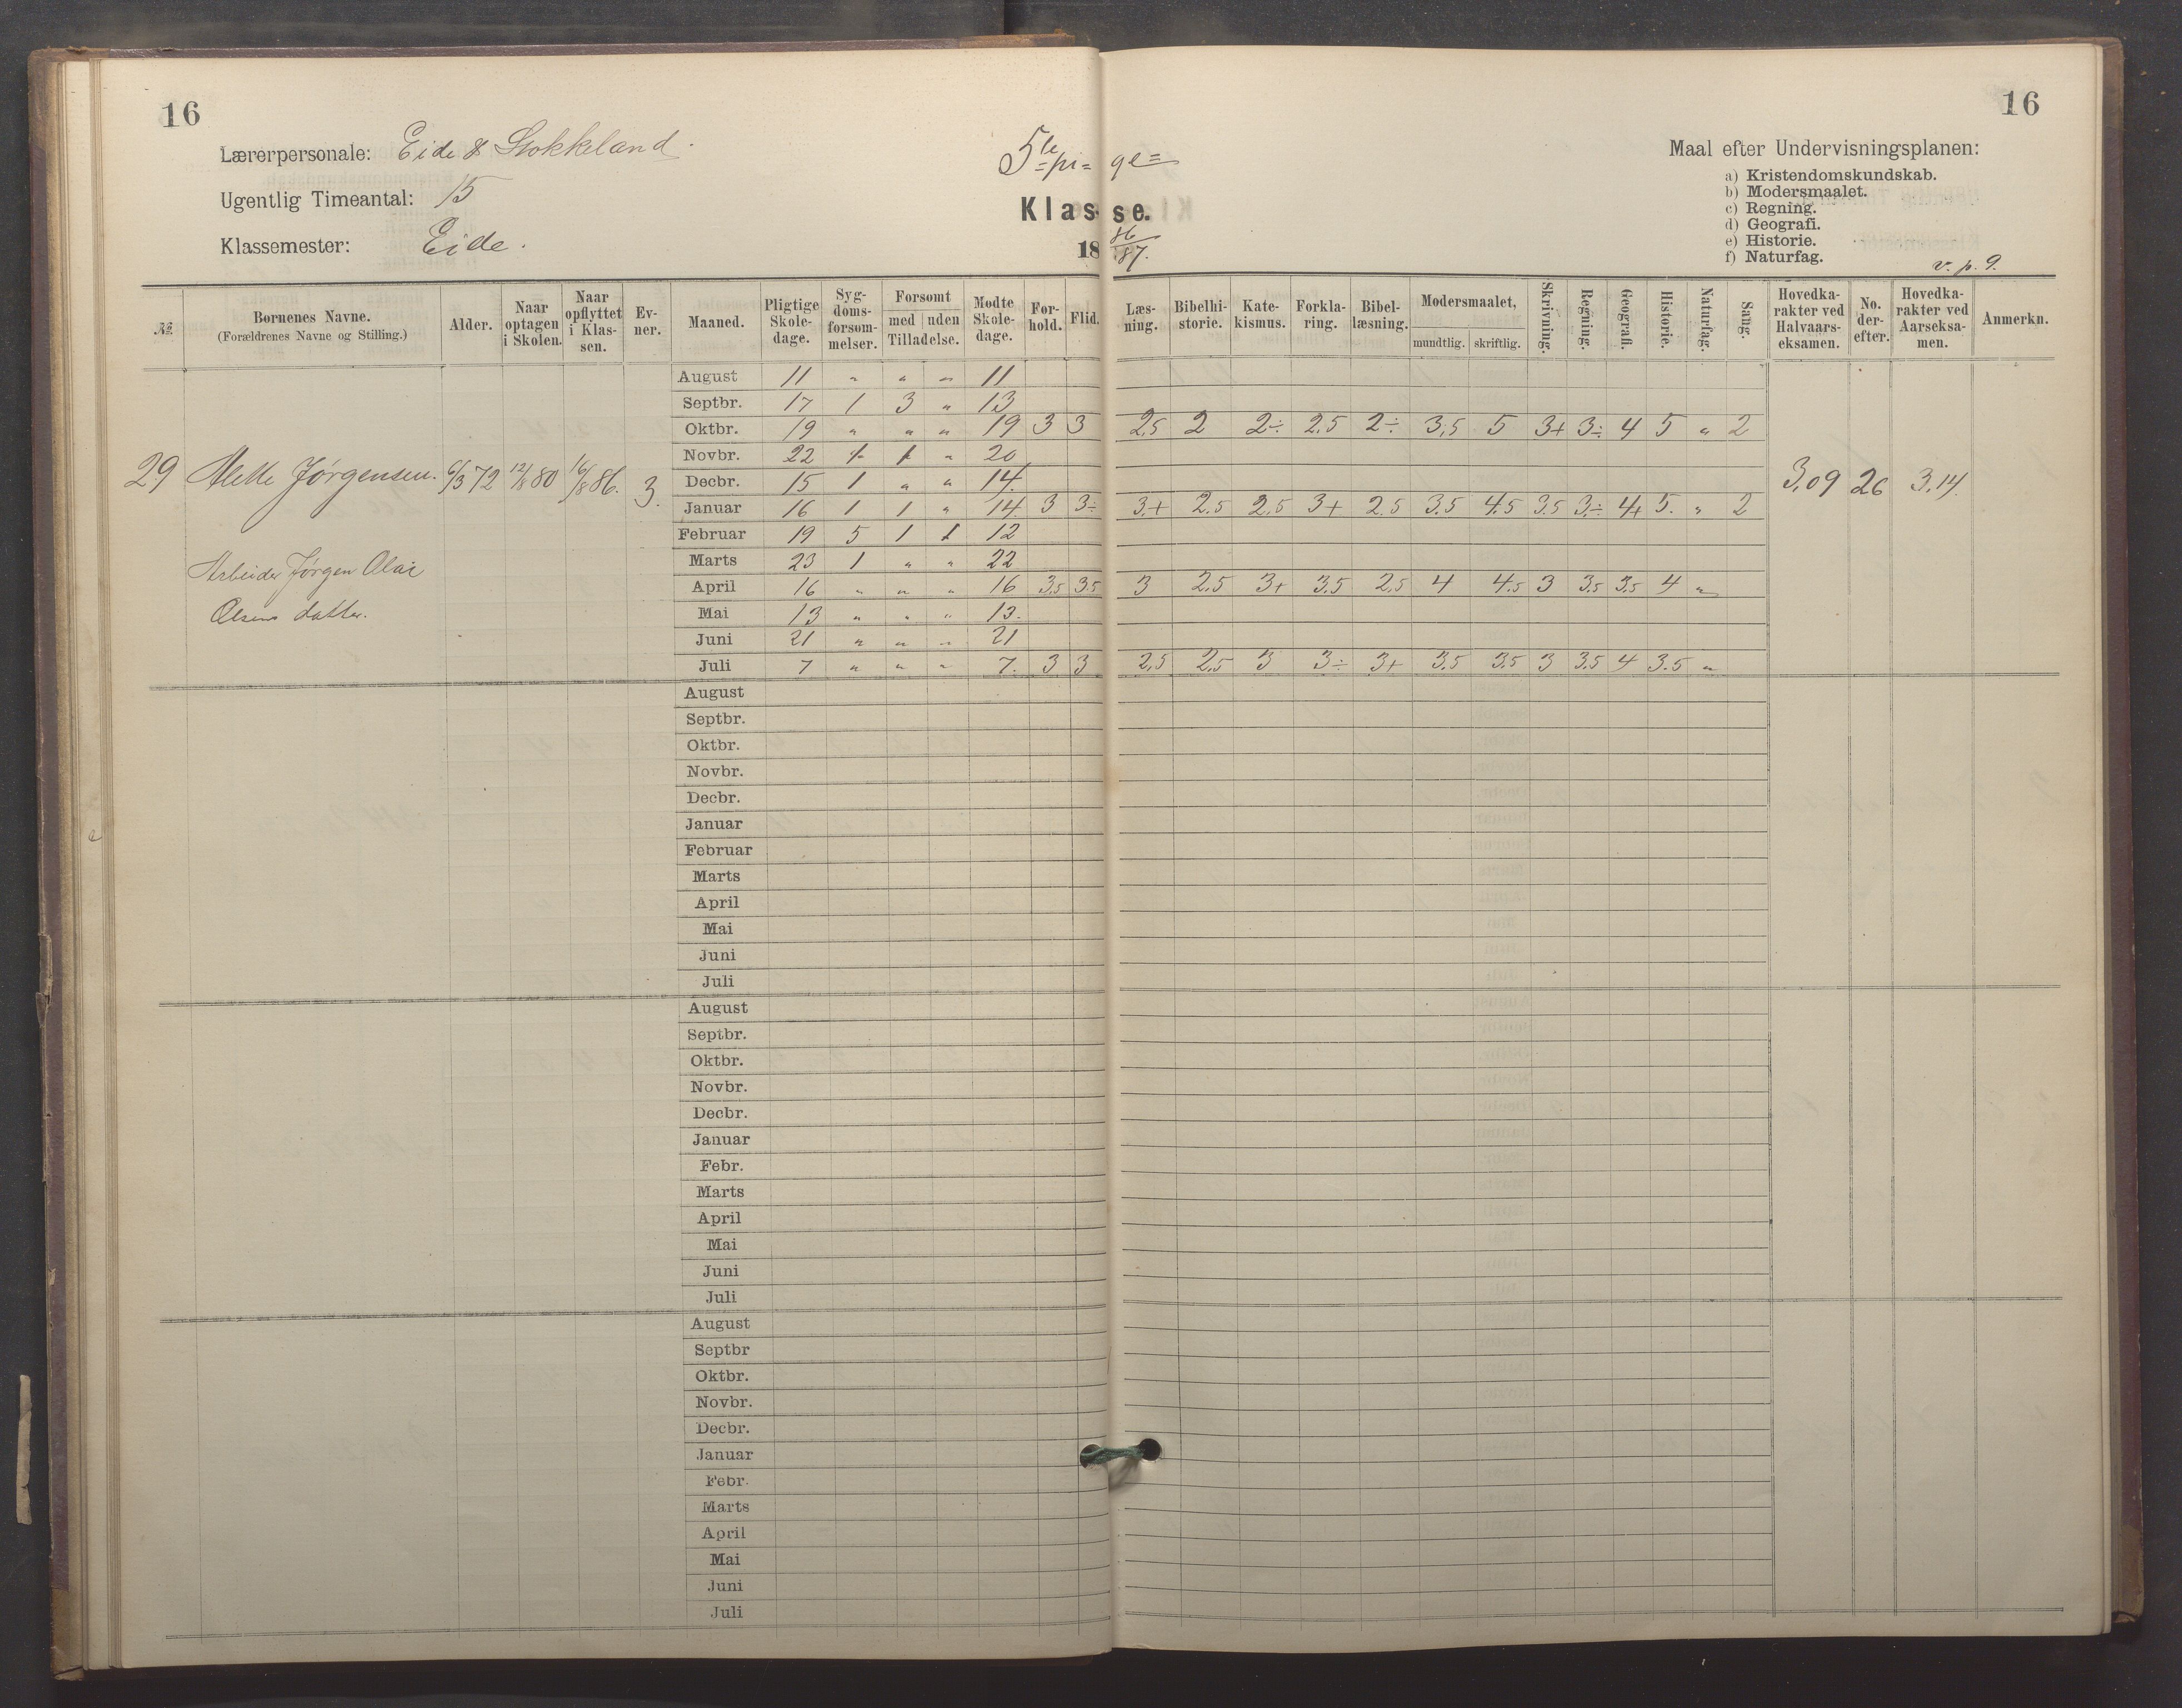 16
16
Lærerpersonale: Eide & Stokkeland.
Ugentlig Timeantal: 15
Klassemester: Eide.
5te pige=
Klasse.
1886/87.
Maal efter Undervisningsplanen:
a) Kristendomskundskab.
b) Modersmaalet.
c) Regning.
d) Geografi.
e) Historie.
f) Naturfag.
v. p. 9.
№ | Børnenes Navne. (Forældrenes Navne og Stilling.) | Alder. | Naar optagen i Skolen. | Naar opflyttet i Klassen. | Evner. | Maaned. | Pligtige Skoledage. | Sygdomsforsømmelser. | Forsømt med uden Tilladelse. | Mødte Skoledage. | Forhold. | Flid. | Læsning. | Bibelhistorie. | Katekismus. | Forklaring. | Bibellæsning. | Modersmaalet, mundtlig. skriftlig. | Skrivning. | Regning. | Geografi. | Historie. | Naturfag. | Sang. | Hovedkarakter ved Halvaarseksamen. | No. derefter. | Hovedkarakter ved Aarseksamen. | Anmerkn.
August 11 " " " 11
Septbr. 17 1 3 " 13
Oktbr. 19 " " " 19 3 3 2,5 2 2÷ 2,5 2÷ 3,5 5 3+ 3÷ 4 5 " 2
Novbr. 22 1 1 " 20
29 Mette Jørgensen. 6/3 72 12/8 80 16/8 86. 3. 3,09 26 3,14.
Decbr. 15 1 " " 14.
Januar 16 1 1 " 14. 3 3÷ 3+ 2.5 2,5 3+ 2.5 3.5 4.5 3.5 3÷ 4+ 5. " 2
Februar 19 5 1 1 12
Marts 23 1 " " 22
Arbeider Jørgen Olai
April 16 " " " 16 3,5 3.5 3 2,5 3+ 3,5 2,5 4 4.5 3 3,5 3,5 4 "
Olsens datter.
Mai 13 " " " 13.
Juni 21 " " " 21
Juli 7 " " " 7. 3 3 2,5 2,5 3 3÷ 3+ 3,5 3.5 3 3,5 4 3.5 "
August
Septbr.
Oktbr.
Novbr.
Decbr.
Januar
Februar
Marts
April
Mai
Juni
Juli
August
Septbr.
Oktbr.
Novbr.
Decbr.
Januar
Febr.
Marts
April
Mai
Juni
Juli
August
Septbr
Oktbr.
Novbr.
Decbr.
Januar
Febr.
Marts
April
Mai
Juni
Juli